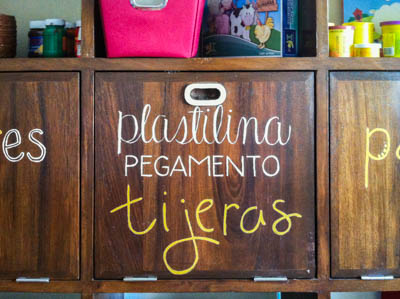 plastilina
PEGAMENTO
tijeras